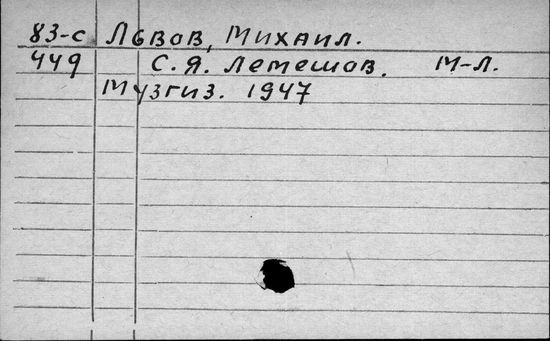 83-с Львов, Михаил.
449 С. Я. Лемешов. М-Л.
Музгиз. 1947